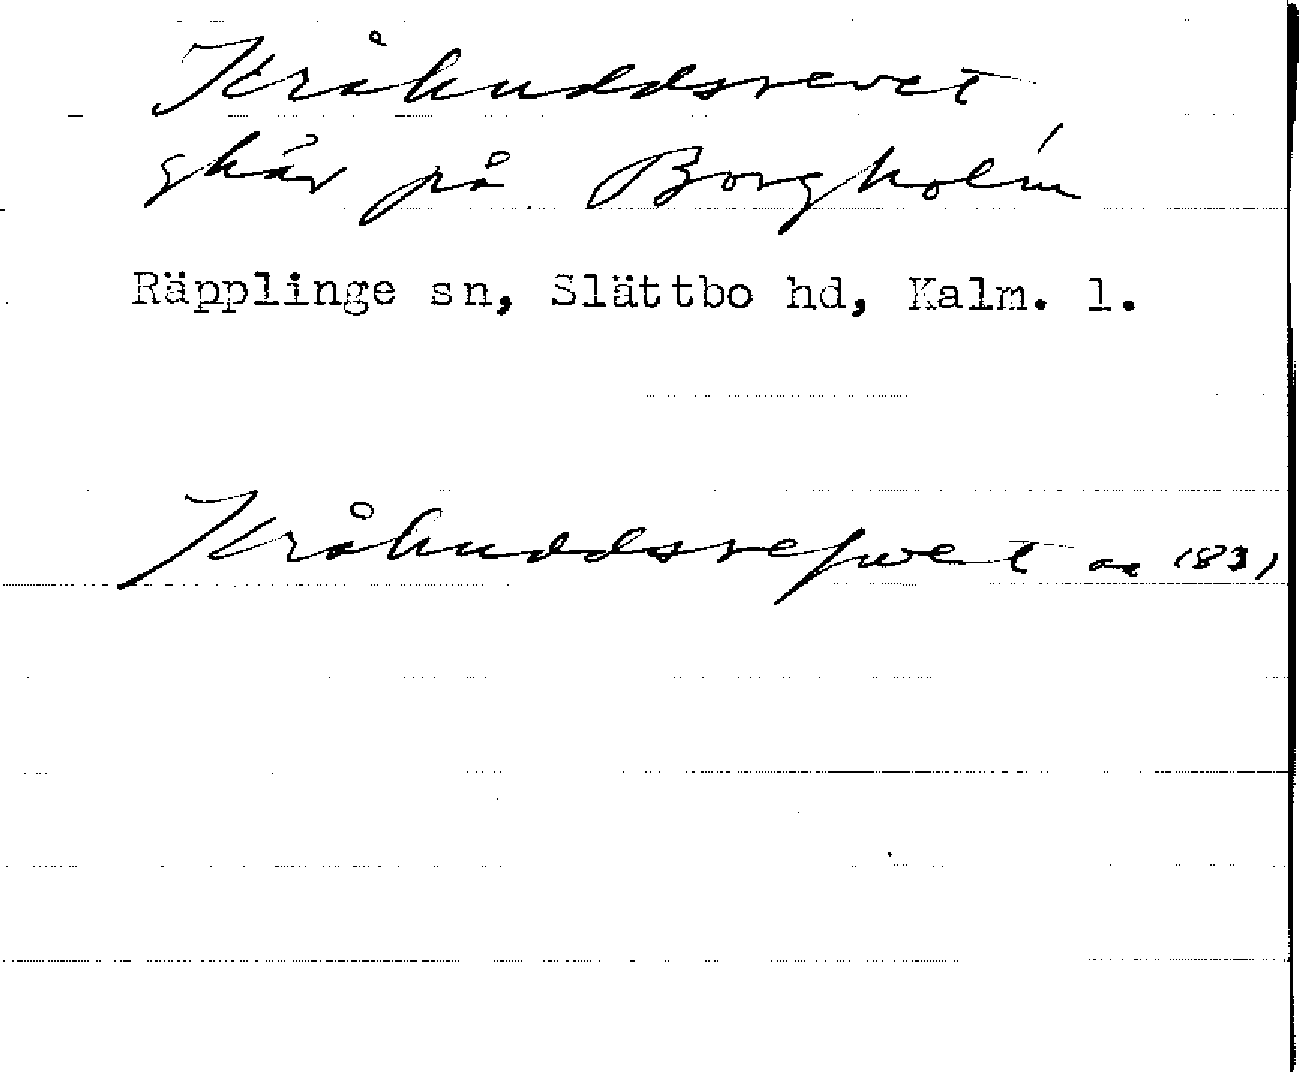 Kråkuddsrevet
skär på Borgholm
Räpplinge sn, Slättbo hd, Kalm. l.
Kråkuddsrefwet 1831